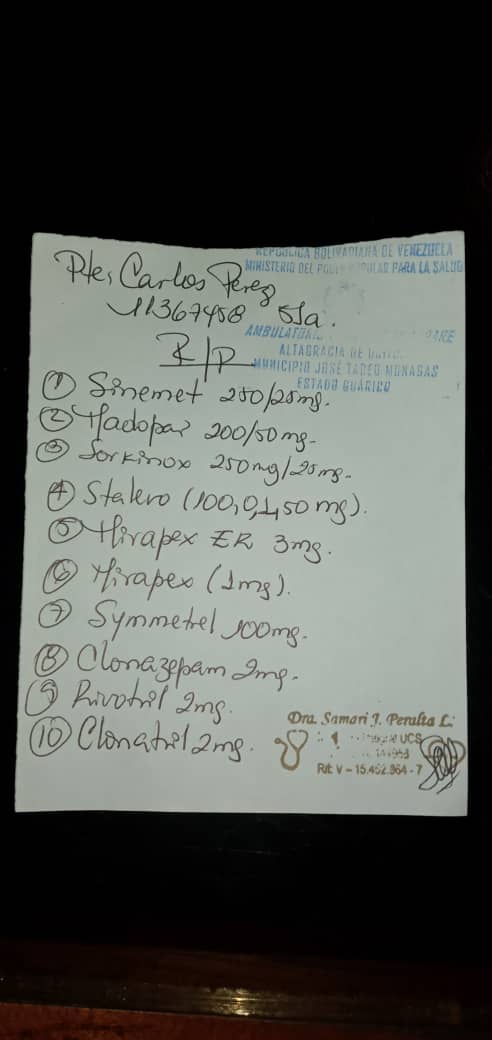 REPUBLICA BOLIVARIANA DE VENEZUELA
MINISTERIO DEL PODER POPULAR PARA LA SALUD
Pte: Carlos Perez
11367458 51a.
AMBULATORIO
ALTAGRACIA DE
MUNICIPIO JOSE TADEO MONAGAS
ESTADO GUÁRICO
R/P
① Sinemet 250/25mg.
② Madopar 200/50mg.
③ Sorkinox 250mg/25mg.
④ Stalevo (100,0,1,50mg).
⑤ Mirapex ER 3mg.
⑥ Mirapex (1mg).
⑦ Symmetrel 100mg.
⑧ Clonazepam 2mg.
⑨ Rivotril 2mg.
⑩ Clonatril 2mg.
Dra. Samari J. Peralta L.
UCS
Rif: V-15.452.864-7